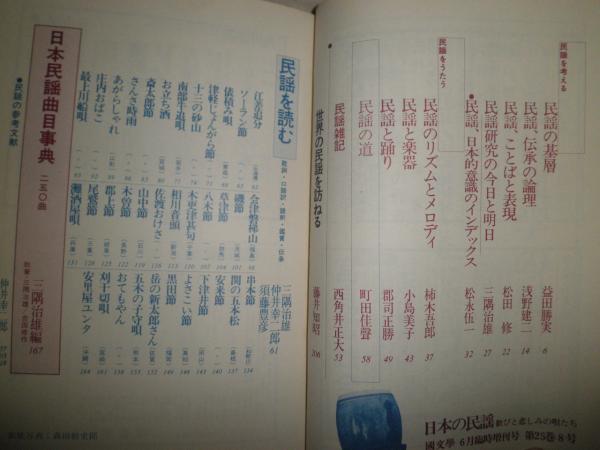 日本の民謡 歓びと悲しみの唄たち
國文學 6月臨時増刊号 第25巻8号
民謡を考える
民謡の基層 益田勝実 6
民謡、伝承の論理 浅野建二 14
民謡、ことばと表現 松田 修 22
民謡研究の今日と明日 三隅治雄 27
●民謡、日本的意識のインデックス 松永伍一 32
民謡をうたう
民謡のリズムとメロディ 柿木吾郎 37
民謡と楽器 小島美子 43
民謡と踊り 郡司正勝 49
民謡の道 町田佳聲 58
民謡雑記 西角井正大 53
世界の民謡を訪ねる 藤井知昭 206
民謡を読む
歌詞・口語訳・語釈・鑑賞・伝承
三隅治雄
仲井幸二郎
須藤豊彦
61
江差追分
ソーラン節
俵積み唄
津軽じょんがら節
十三の砂山
南部牛追唄
お立ち酒
斎太郎節
さんさ時雨
あがらしゃれ
庄内おばこ
最上川船唄
会津磐梯山
磯節
草津節
八木節
木更津甚句
相川音頭
佐渡おけさ
山中節
木曽節
郡上節
尾鷲節
灘酒屋唄 131
串本節 134
関の五本松 137
安来節 140
下津井節
よさこい節
黒田節
岳の新太郎さん
五木の子守唄
おてもやん
刈干切唄
安里屋ユンタ 164
日本民謡曲目事典 二五〇曲
三隅治雄編 167
●民謡の参考文献
仲井幸二郎